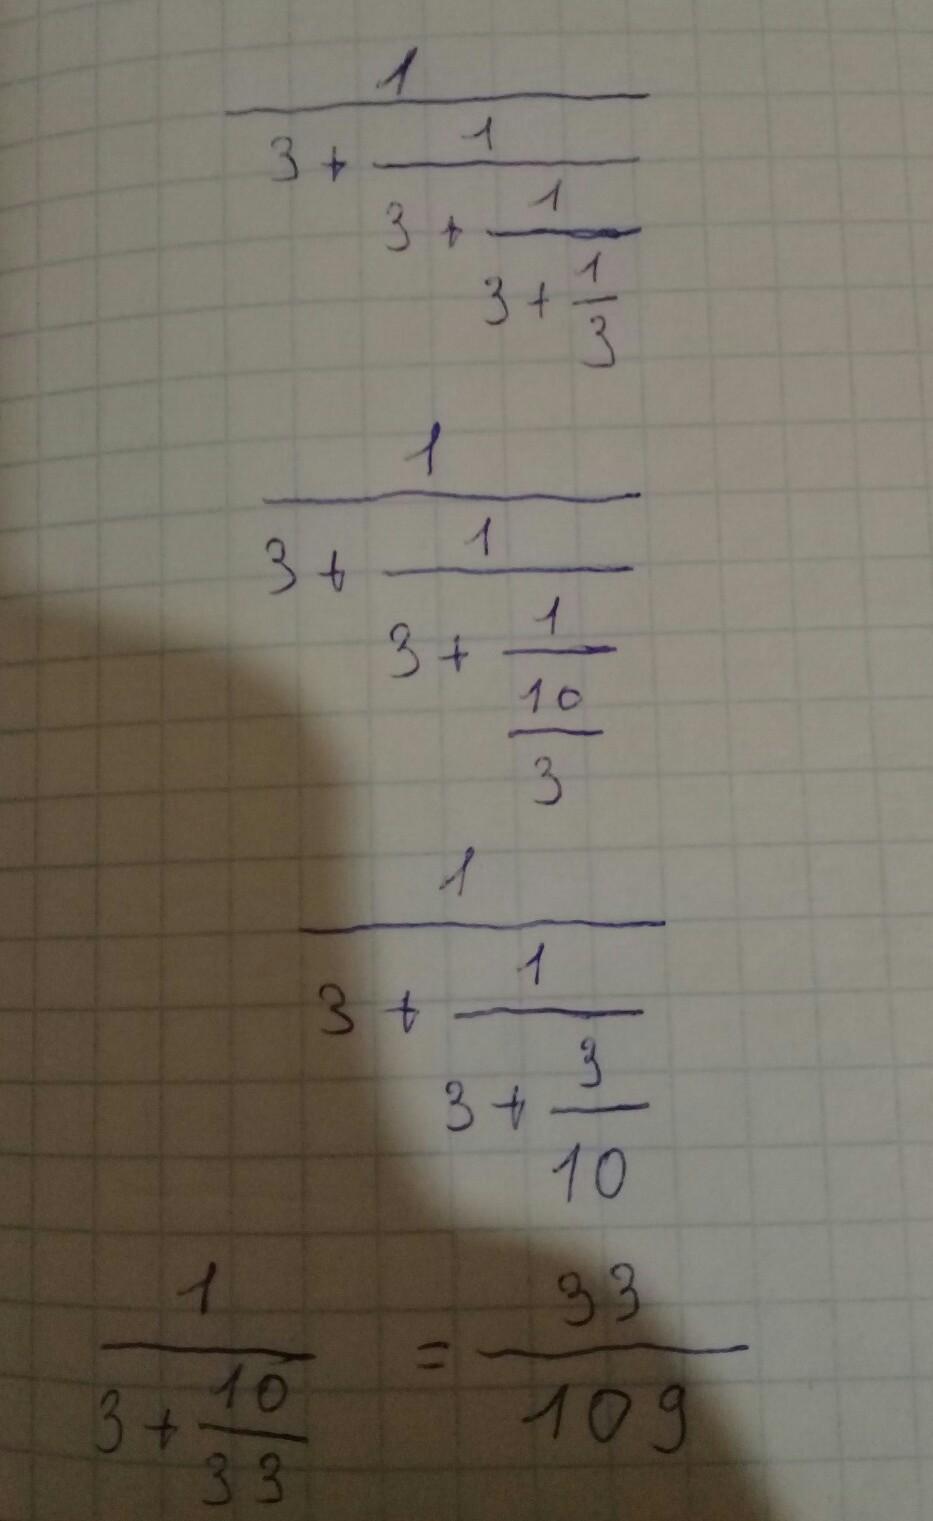 1
3 + 1
3 + 1
3 + 1
3
1
3 + 1
3 + 1
10
3
1
3 + 1
3 + 3
10
1 33
3 + 10 = 109
33